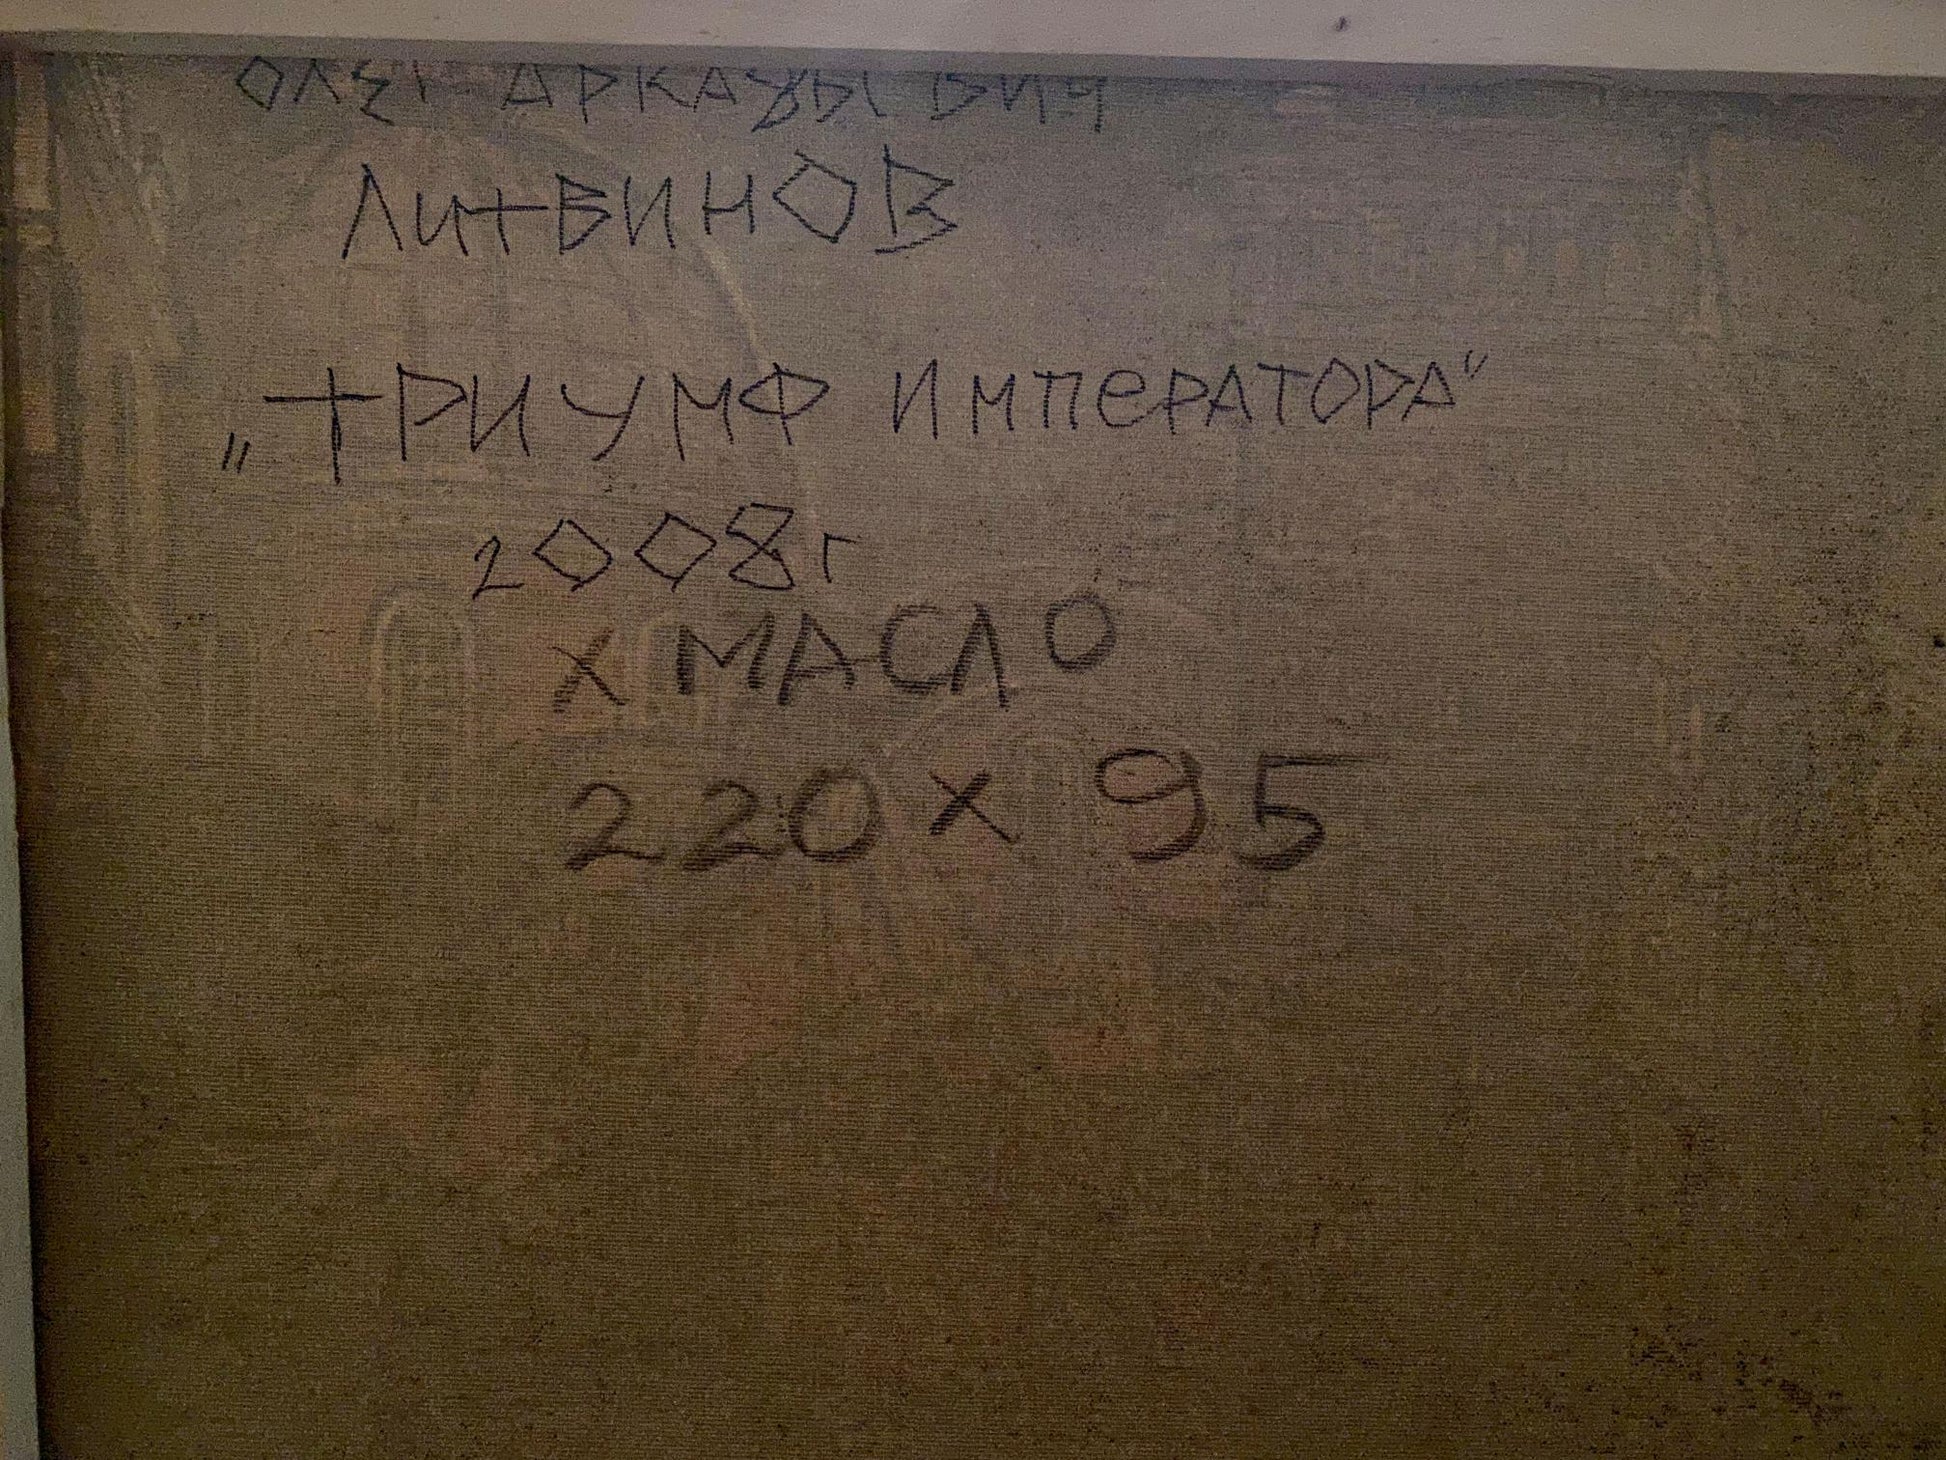 ОЛЕГ АРКАДЬЕВИЧ
ЛИТВИНОВ
„ТРИУМФ ИМПЕРАТОРА"
2008г
х МАСЛО
220 х 95